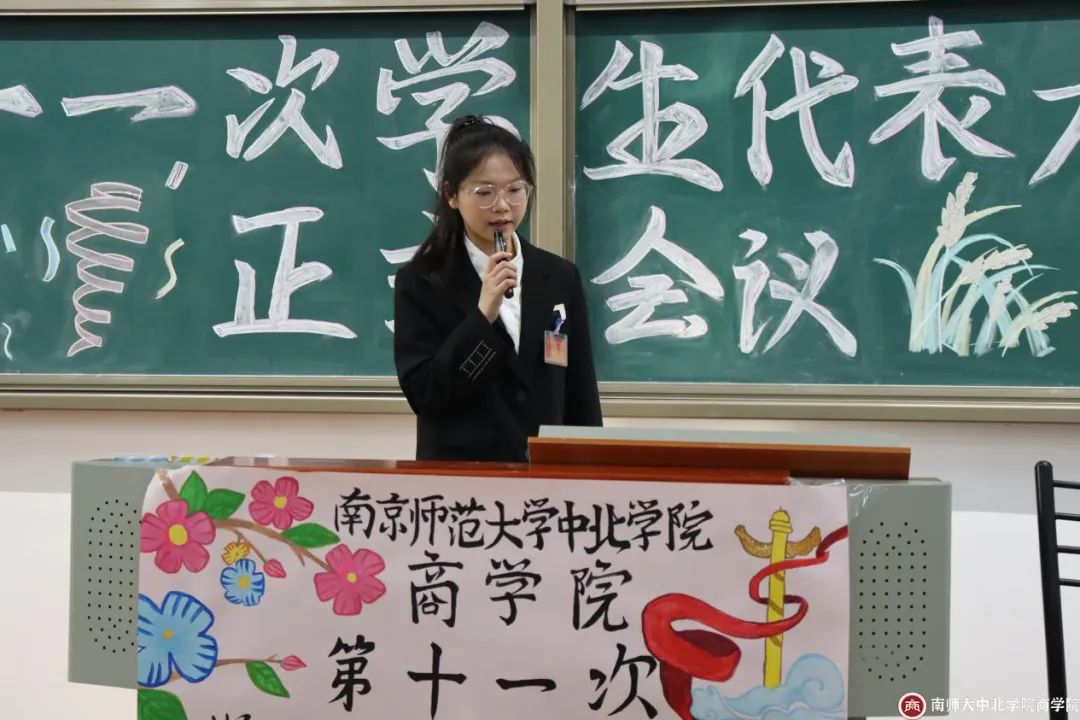 十一次学生代表大
正式会议
南京师范大学中北学院
商学院
第十一次
学
南师大中北学院商学院